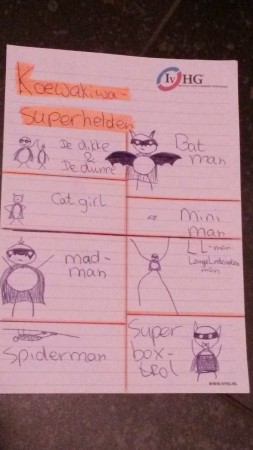 IvHG
Koewakiwa-
superhelden
De dikke
&
De dunne
Bat
man
Cat girl
mini
man
mad-
man
LL-man
man
Spiderman
Super
box-
trol
www.ivhg.nl